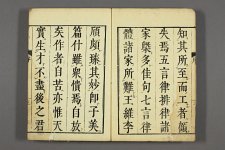 知其所至而工者頗
失焉五言律排律諸
家槩多佳句七言律
體諸家所難王維李
頎頗臻其妙即子美
篇什雖衆憒焉自放
矣作者自苦亦惟天
實生才不盡後之君